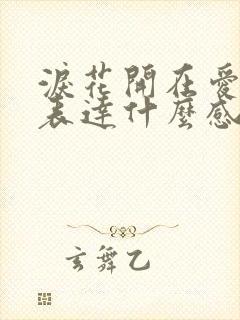 淚花開在愛
表達什麼感
玄舞乙